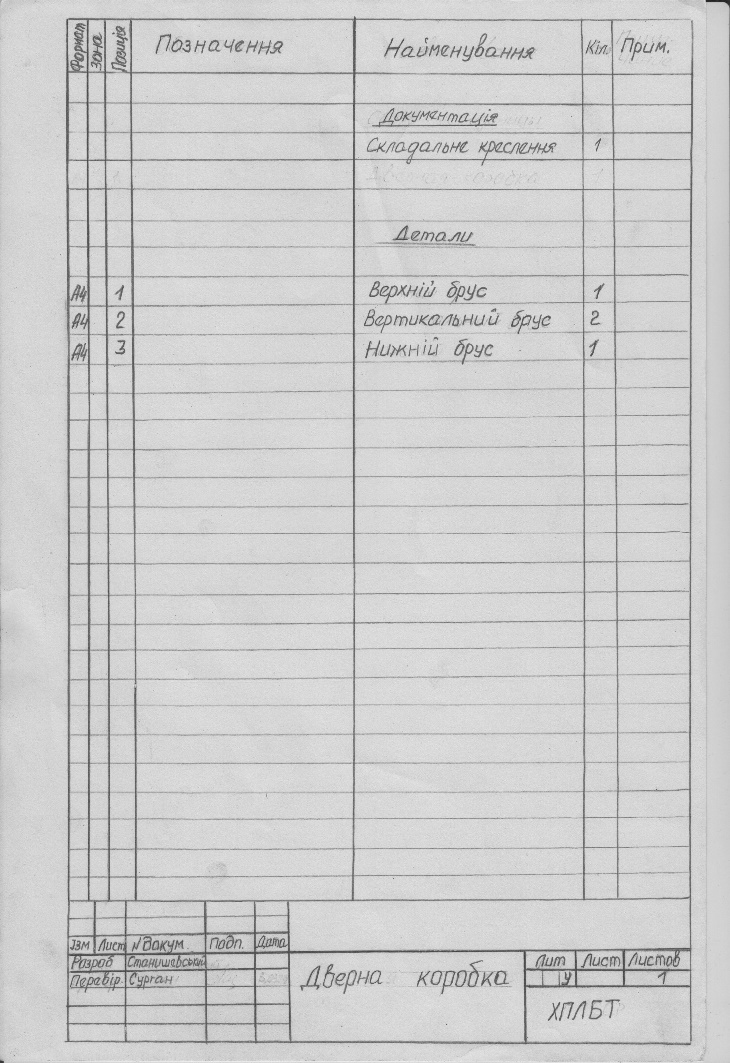 Формат Зона Позиція Позначення Найменування Кіл. Прим.
Документація
Складальне креслення 1
Детали
А4 1 Верхній брус 1
А4 2 Вертикальний брус 2
А4 3 Нижній брус 1
Ізм Лист № Докум. Подп. Дата
Розроб Станишевський
Перевір. Сурган
Дверна коробка
Лит Лист Листов
У 1
ХПЛБТ